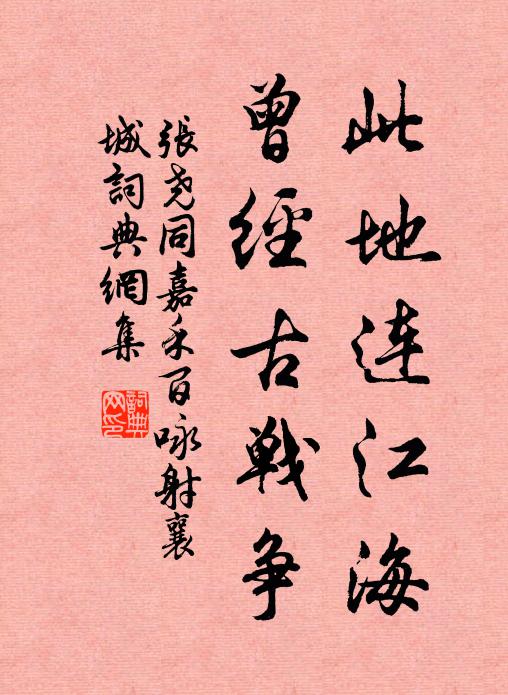 此地连江海
曾經古戰争
張尧同嘉禾百咏射襄
城詞典網集
詞典
网印